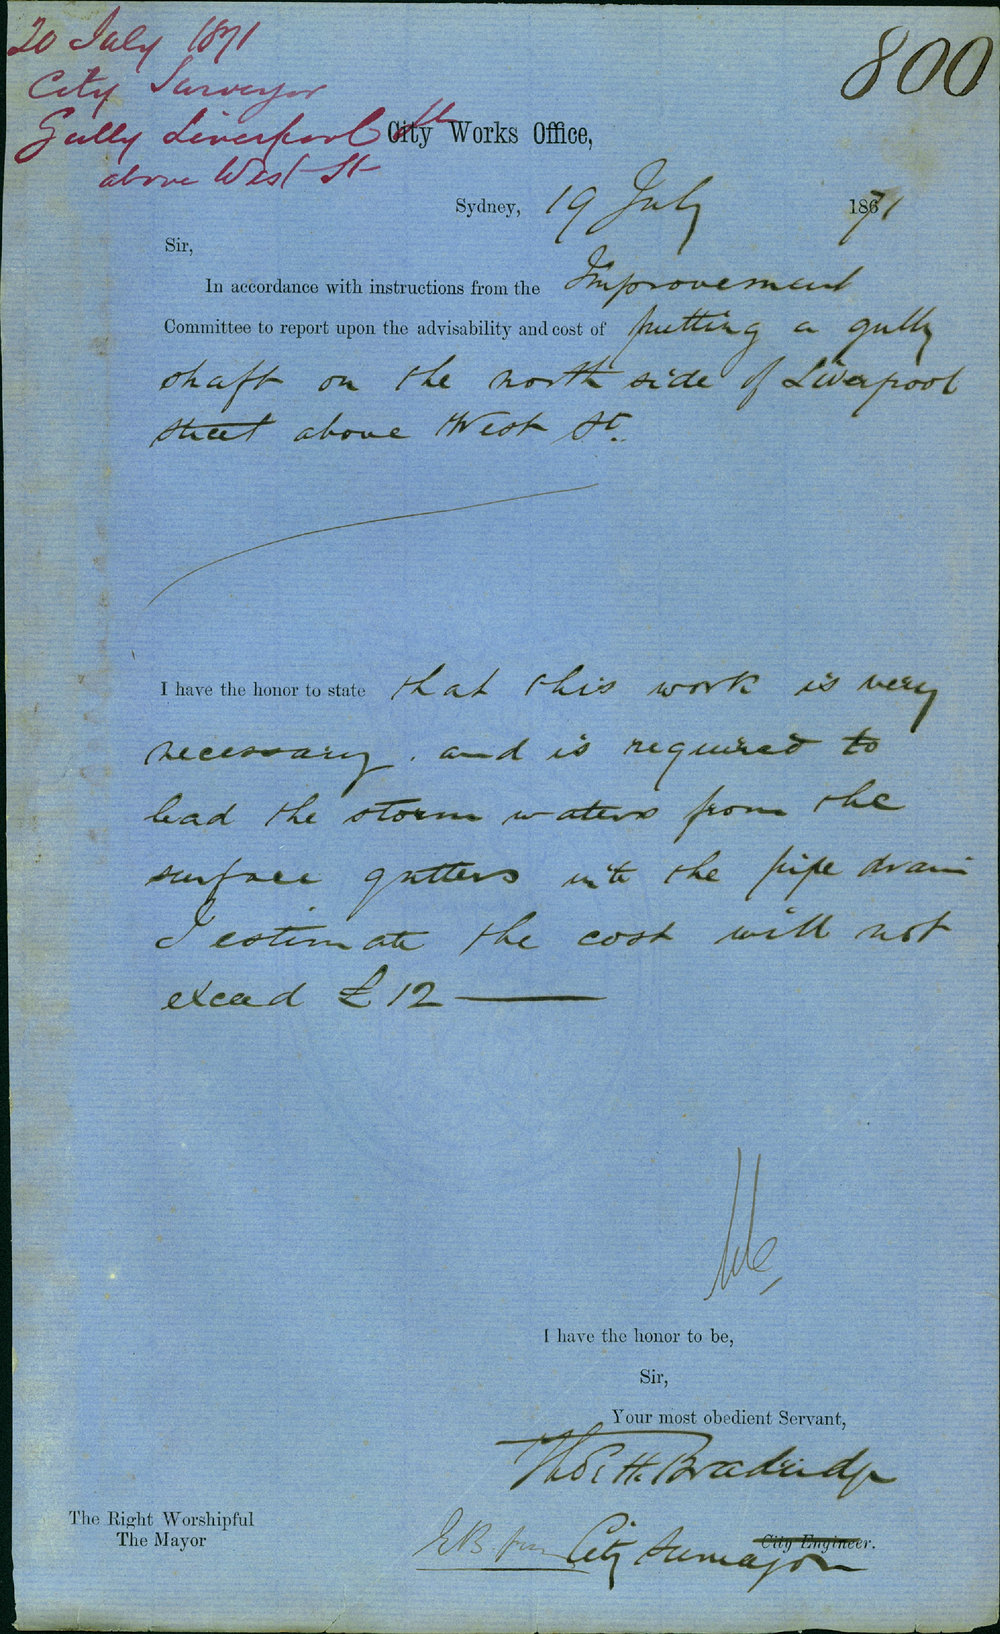 20 July 1871
City Surveyor
Gully Liverpool St
above West St
800
City Works Office,
Sydney, 19 July 1871
Sir,
In accordance with instructions from the Improvement
Committee to report upon the advisability and cost of putting a gully
shaft on the north side of Liverpool
street above West St.
I have the honor to state that this work is very
necessary. and is required to
lead the storm waters from the
surface gutters into the pipe drain
I estimate the cost will not
exceed £12
I have the honor to be,
Sir,
Your most obedient Servant,
Thos. H. Bradridge
City Engineer.
City Surveyor
The Right Worshipful
The Mayor